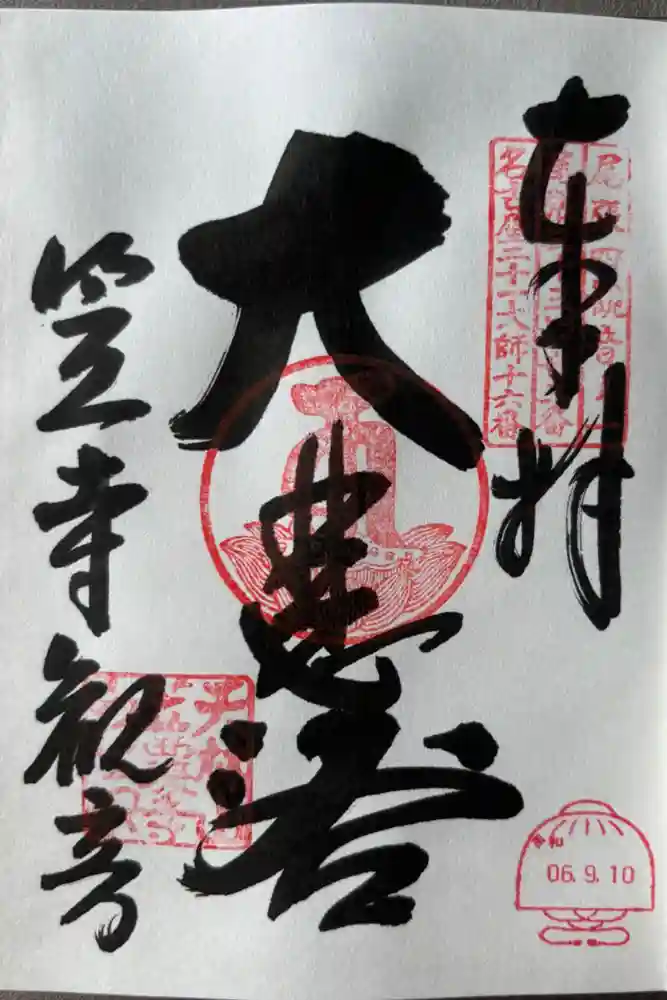 奉拝
尾張四観音
名古屋二十一大師十六番
大悲閣
笠寺観音
令和
06.9.10